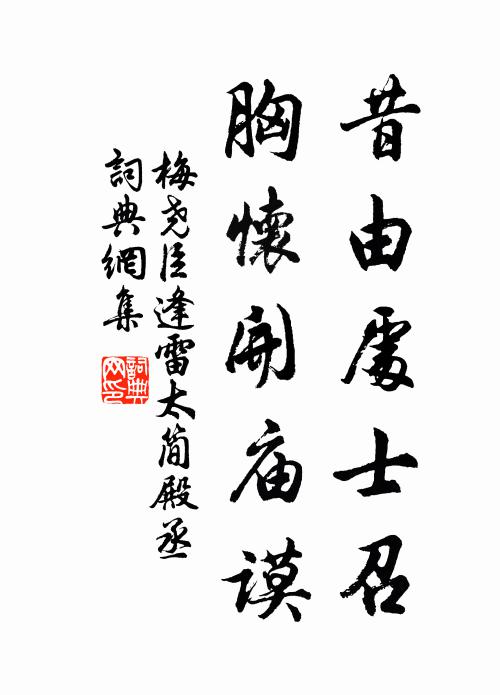 昔由處士召
胸懷開庙谟
梅尧臣逢雷太简殿丞
詞典網集
詞典網印